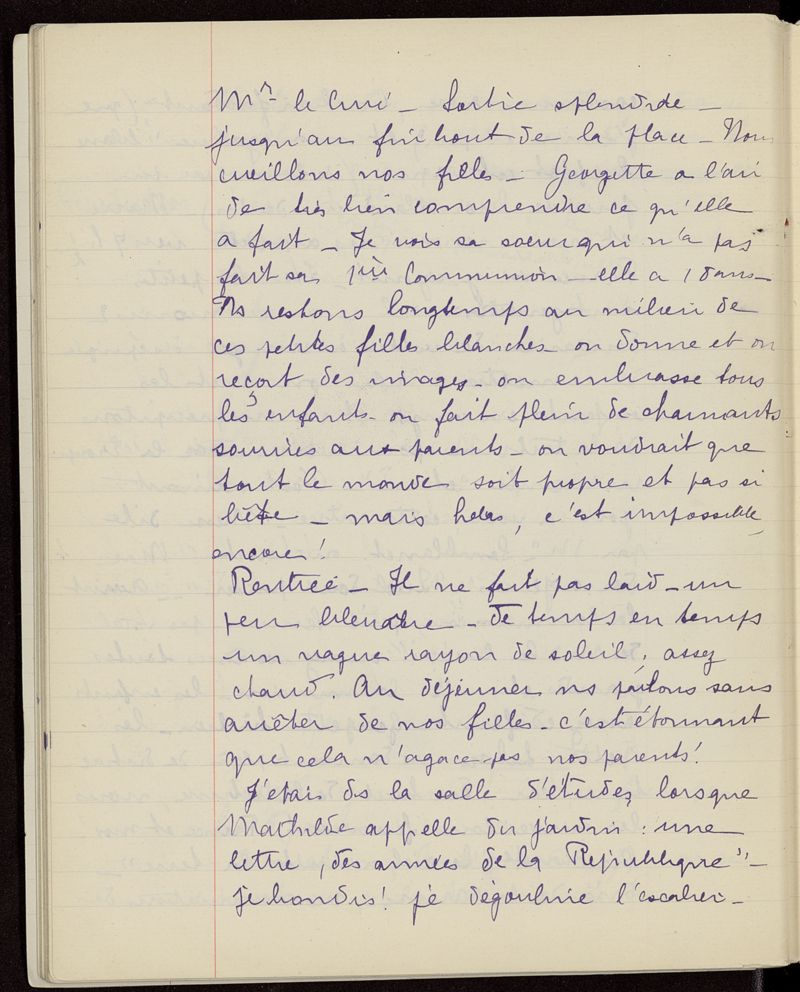 Mr le Curé – Sortie splendide –
jusqu'au fin bout de la place – Nous
cueillons nos filles – Georgette a l'air
de très bien comprendre ce qu'elle
a fait – Je vois sa soeur qui n'a pas
fait sa 1ière Communion – elle a 10 ans –
Ns restons longtemps au milieu de
ces petites filles blanches – on donne et on
reçoit des images – on embrasse tous
les enfants – on fait plein de charmants
sourires aux parents – on voudrait que
tout le monde soit propre et pas si
bête – mais helas, c'est impossible
encore !
Rentrée – Il ne fait pas laid – un
peu bleuâtre – de temps en temps
un vague rayon de soleil, assez
chaud. Au déjeuner ns parlons sans
arrêter de nos filles – c'est étonnant
que cela n'agace pas nos parents !
J'étais ds la salle d'études, lorsque
Mathilde appelle du jardin : une
lettre, des armées de la République" –
je bondis ! je dégouline l'escalier –